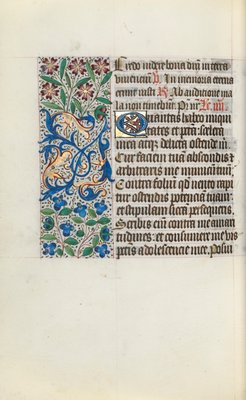 Credo videre bona dñi in terra
viuencium. In memoria eterna
erit iustus. Ab auditione ma
la non timebit.
Quantas habeo iniqui
tates et pctã scelera
mea atqʒ delicta ostende m̃.
Cur faciem tuã abscondis et
arbitraris me inimicũ tuũ.
Contra foliũ qđ vento rapit
ostendis potenciã tuam
et stipulam siccã persequeris.
Scribis eĩm contra me amari
tudines: et consumere me vis
pctis adolescencie mee. Posui